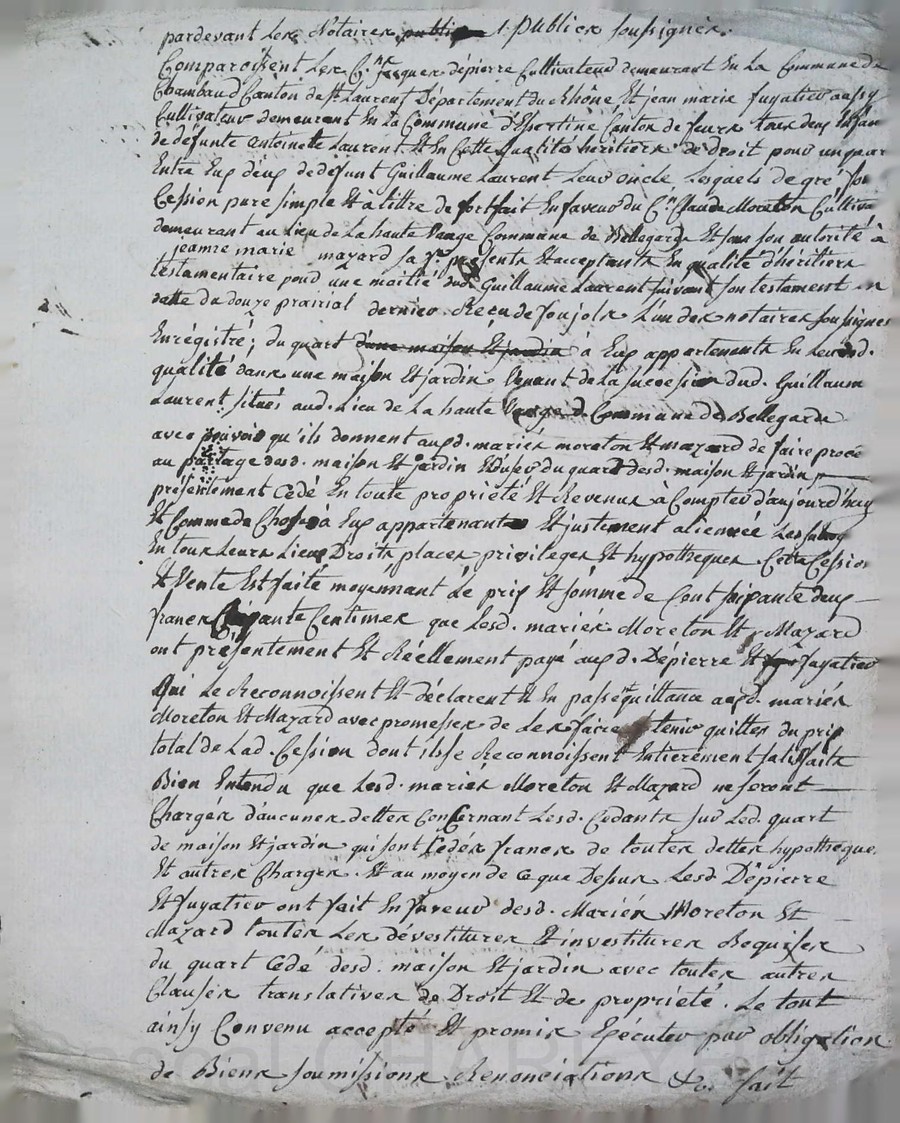 pardevant Les Notaires publics Soussignés.
Comparoissent Les C.ns jacques dépierre Cultivateur demeurant En La Commune de
Chambaud Canton de St Laurent Département du Rhône Et jean marie fuyatier aussy
Cultivateur demeurant En La Commune d'Esertine Canton de feurs tous deux
de défunte antoinette Laurent Et En Cette qualité héritiers de droit pour un quar
Entre Eux deux de défunt Guillaume Laurent Leur oncle Lesquels de gré font
Cession pure simple Et à tittre de forfait En faveur du C.n Claude Moreton Cultiva
demeurant au Lieu de La haute Commune de Bellegarde Et sous son autorité à
jeanne marie mazard sa f.e présents Et acceptants En qualité d'héritiers
testamentaire pour une moitié dud. Guillaume Laurent suivant son testament En
datte du douze prairial dernier Recu de foujols L'un des notaires soussignés
Enrégistré; du quart d'une maison Et jardin à Eux appartenants En Leurd.
qualité dans une maison Et jardin Venant de La succession dud. Guillaum
Laurent situés aud. Lieu de La haute Commune de Bellegarde
avec pouvoir qu'ils donnent auxd. mariés moreton Et mazard de faire procé
au partage desd. maison Et jardin Et du quart desd. maison Et jardin
présentement Cédé En toute propriété Et Revenus à Compter d'aujourd'huy
Et Comme de Chose à Eux appartenante Et justement aliennée Les subrog
En tous Leurs Lieux Droits places privileges Et hypotheques. Cette Cession
Et Vente Est faite moyennant Le prix Et somme de Cent soixante deux
francs Cinquante Centimes que Lesd. mariés Moreton Et Mazard
ont présentement Et Réellement payé auxd. Dépierre Et fuyatier
Qui Le Reconnoissent Et déclarent Et En passent quittance auxd. mariés
Moreton Et Mazard avec promesses de Les faire tenir quittes du prix
total de Lad. Cession dont ils se Reconnoissent Entièrement satisfaits
Bien Entendu que Lesd. mariés Moreton Et Mazard ne seront
Chargés d'aucunes dettes Concernant Lesd. Cédants sur Led. quart
de maison Et jardin qui sont Cédés francs de toutes dettes hypotheque
Et autres Charges. Et au moyen de Ce que Dessus Lesd. Dépierre
Et fuyatier ont fait En faveur desd. Mariés Moreton Et
Mazard toutes Les dévestitures Et investitures Requises
du quart Cédé desd. maison Et jardin avec toutes autres
Clauses translatives de Droit Et de propriété. Le tout
ainsy Convenu accepté Et promis Exécuter par obligation
de Biens soumissions Renonciations &c. fait